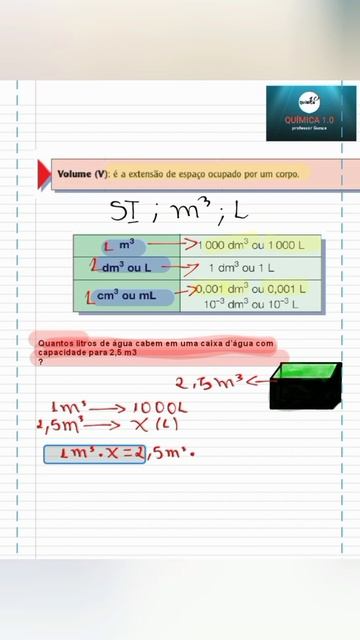 química
QUÍMICA 1.0
professor Gomes
Volume (V): é a extensão de espaço ocupado por um corpo.
SI ; m³ ; L
1 m³ → 1 000 dm³ ou 1 000 L
1 dm³ ou L → 1 dm³ ou 1 L
1 cm³ ou mL → 0,001 dm³ ou 0,001 L
10⁻³ dm³ ou 10⁻³ L
Quantos litros de água cabem em uma caixa d'água com
capacidade para 2,5 m3
?
2,5m³ ←
1m³ → 1000L
2,5m³ → X (L)
1m³ . X = 2,5m³ .